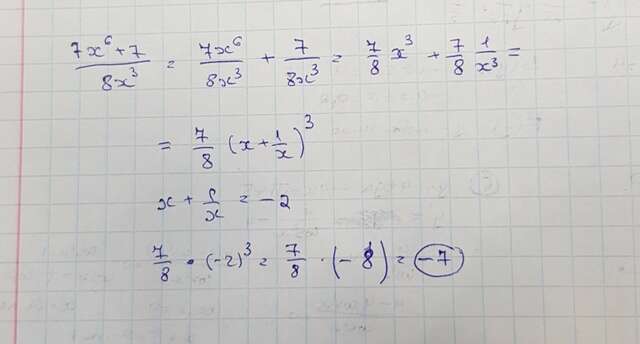 (7x⁶+7)/(8x³) = 7x⁶/8x³ + 7/8x³ = 7/8 x³ + 7/8 1/x³ =
= 7/8 (x+1/x)³
x + 1/x = -2
7/8 · (-2)³ = 7/8 · (-8) = -7